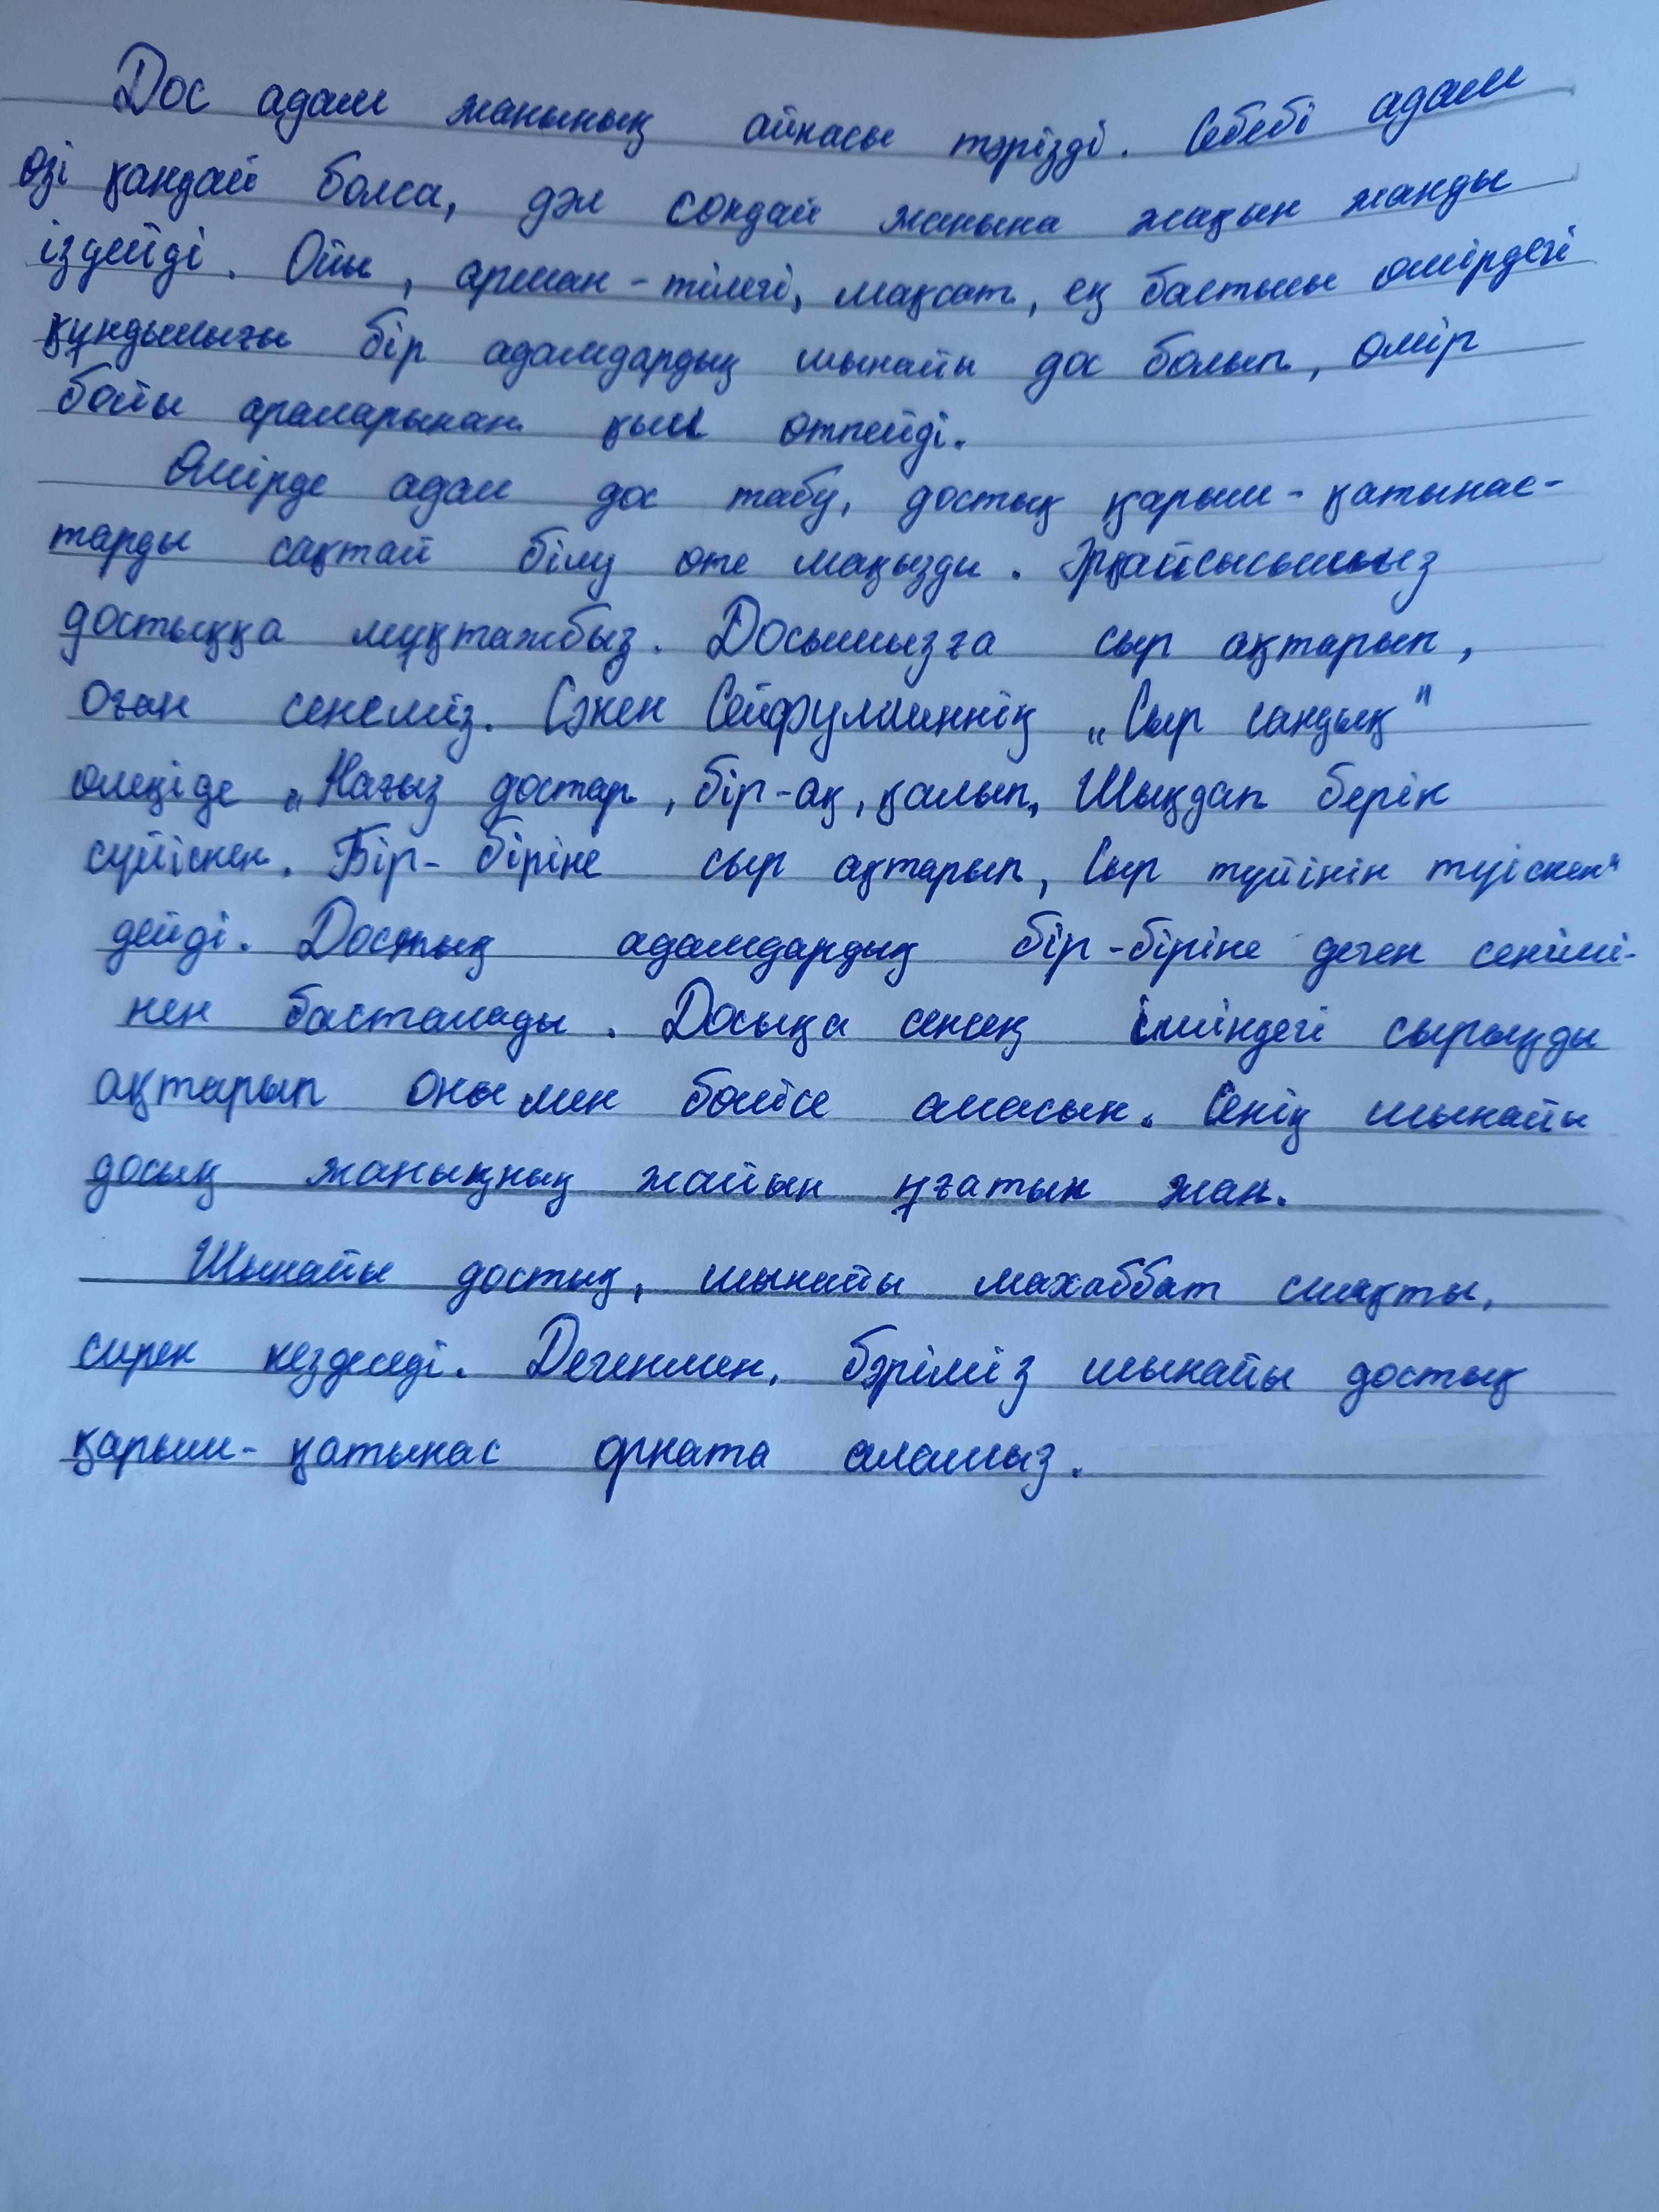 Дос адам жанының айнасы тәрізді. Себебі адам
өзі қандай болса, дәл сондай жанына жақын жанды
іздейді. Ойы, арман-тілегі, мақсат, ең бастысы өмірдегі
құндылығы бір адамдардың шынайы дос болып, өмір
бойы араларынан қыл өтпейді.
Өмірде адал дос табу, достық қарым-қатынас-
тарды сақтай білу өте маңызды. Әрқайсысымыз
достыққа мұқтажбыз. Досымызға сыр ақтарып,
оған сенеміз. Сәкен Сейфуллиннің „Сыр сандық"
өлеңіде „Нағыз достар, бір-ақ, қалып, Шыңдап берік
сүйіскен. Бір-біріне сыр ақтарып, Сыр түйінін түіскен"
дейді. Достық адамдардың бір-біріне деген сенімі-
нен басталады. Досыңа сенсең ішіндегі сырыңды
ақтарып онымен бөлісе аласың. Сенің шынайы
досың жаныңның жайын ұғатын жан.
Шынайы достық, шынайы махаббат сияқты,
сирек кездеседі. Дегенмен, бәріміз шынайы достық
қарым-қатынас орната аламыз.